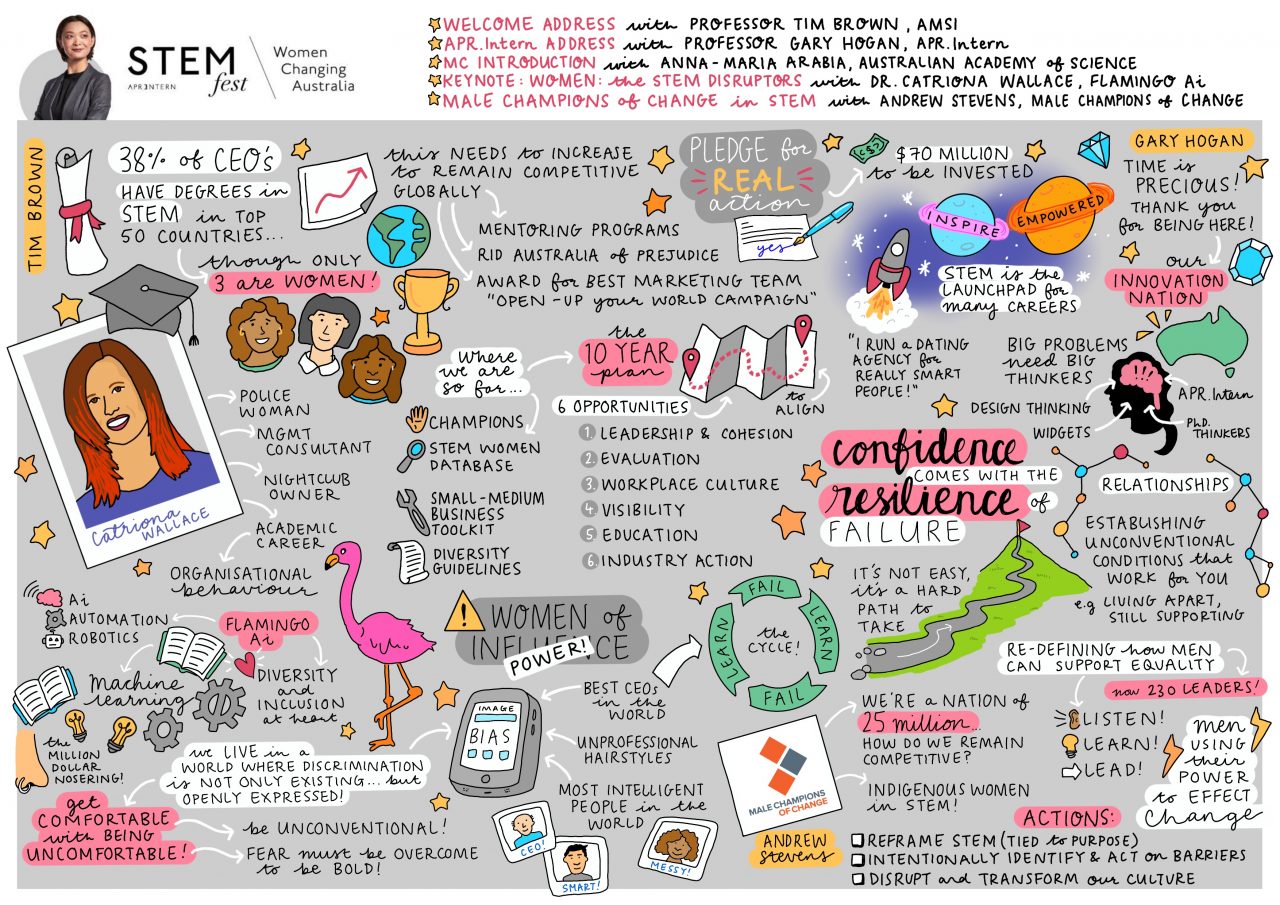 STEM
APR3NTERN
fest
Women
Changing
Australia
WELCOME ADDRESS with PROFESSOR TIM BROWN, AMSI
APR.Intern ADDRESS with PROFESSOR GARY HOGAN, APR.Intern
MC INTRODUCTION with ANNA-MARIA ARABIA, AUSTRALIAN ACADEMY of SCIENCE
KEYNOTE: WOMEN: the STEM DISRUPTORS with DR. CATRIONA WALLACE, FLAMINGO Ai
MALE CHAMPIONS of CHANGE in STEM with ANDREW STEVENS, MALE CHAMPIONS of CHANGE
TIM BROWN
38% of CEO's
HAVE DEGREES in
STEM in TOP
50 COUNTRIES...
though ONLY
3 are WOMEN!
this NEEDS to INCREASE
to REMAIN COMPETITIVE
GLOBALLY
MENTORING PROGRAMS
RID AUSTRALIA of PREJUDICE
AWARD for BEST MARKETING TEAM
"OPEN-UP your WORLD CAMPAIGN"
PLEDGE for
REAL
action
yes
$70 MILLION
to be INVESTED
INSPIRE
EMPOWERED
STEM is the
LAUNCHPAD for
many CAREERS
GARY HOGAN
TIME is
PRECIOUS!
THANK you
for BEING HERE!
our
INNOVATION
NATION
"I RUN a DATING
AGENCY for
REALLY SMART
PEOPLE!"
BIG PROBLEMS
need BIG
THINKERS
DESIGN THINKING
WIDGETS
APR.Intern
PhD.
THINKERS
Catriona
WALLACE
POLICE
WOMAN
MGMT
CONSULTANT
NIGHTCLUB
OWNER
ACADEMIC
CAREER
ORGANISATIONAL
behaviour
where
we are
so far...
CHAMPIONS
STEM WOMEN
DATABASE
SMALL-MEDIUM
BUSINESS
TOOLKIT
DIVERSITY
GUIDELINES
the
10 YEAR
plan
to
ALIGN
6 OPPORTUNITIES
1 LEADERSHIP & COHESION
2 EVALUATION
3 WORKPLACE CULTURE
4 VISIBILITY
5 EDUCATION
6 INDUSTRY ACTION
confidence
COMES WITH THE
resilience of
FAILURE
IT'S NOT EASY,
it's a HARD
PATH to
TAKE
RELATIONSHIPS
ESTABLISHING
UNCONVENTIONAL
CONDITIONS that
WORK for YOU
e.g LIVING APART,
STILL SUPPORTING
Ai
AUTOMATION
ROBOTICS
FLAMINGO
Ai
Machine
learning
DIVERSITY
and
INCLUSION
at heart
the
MILLION
DOLLAR
NOSERING!
we LIVE in a
WORLD WHERE DISCRIMINATION
is NOT ONLY EXISTING... but
OPENLY EXPRESSED!
get
COMFORTABLE
with BEING
UNCOMFORTABLE!
be UNCONVENTIONAL!
FEAR must be OVERCOME
to be BOLD!
WOMEN of
INFLUENCE
POWER!
IMAGE
BIAS
BEST CEOs
in the
WORLD
UNPROFESSIONAL
HAIRSTYLES
MOST INTELLIGENT
PEOPLE in the
WORLD
CEO!
SMART!
MESSY!
FAIL
LEARN
FAIL
LEARN
the
CYCLE!
MALE CHAMPIONS
OF CHANGE
ANDREW
Stevens
WE'RE A NATION of
25 million...
HOW DO WE REMAIN
COMPETITIVE?
INDIGENOUS WOMEN
in STEM!
RE-DEFINING how MEN
CAN SUPPORT EQUALITY
now 230 LEADERS!
LISTEN!
LEARN!
LEAD!
men
USING
their
POWER
to EFFECT
Change
ACTIONS:
REFRAME STEM (TIED to PURPOSE)
INTENTIONALLY IDENTIFY & ACT on BARRIERS
DISRUPT and TRANSFORM our CULTURE